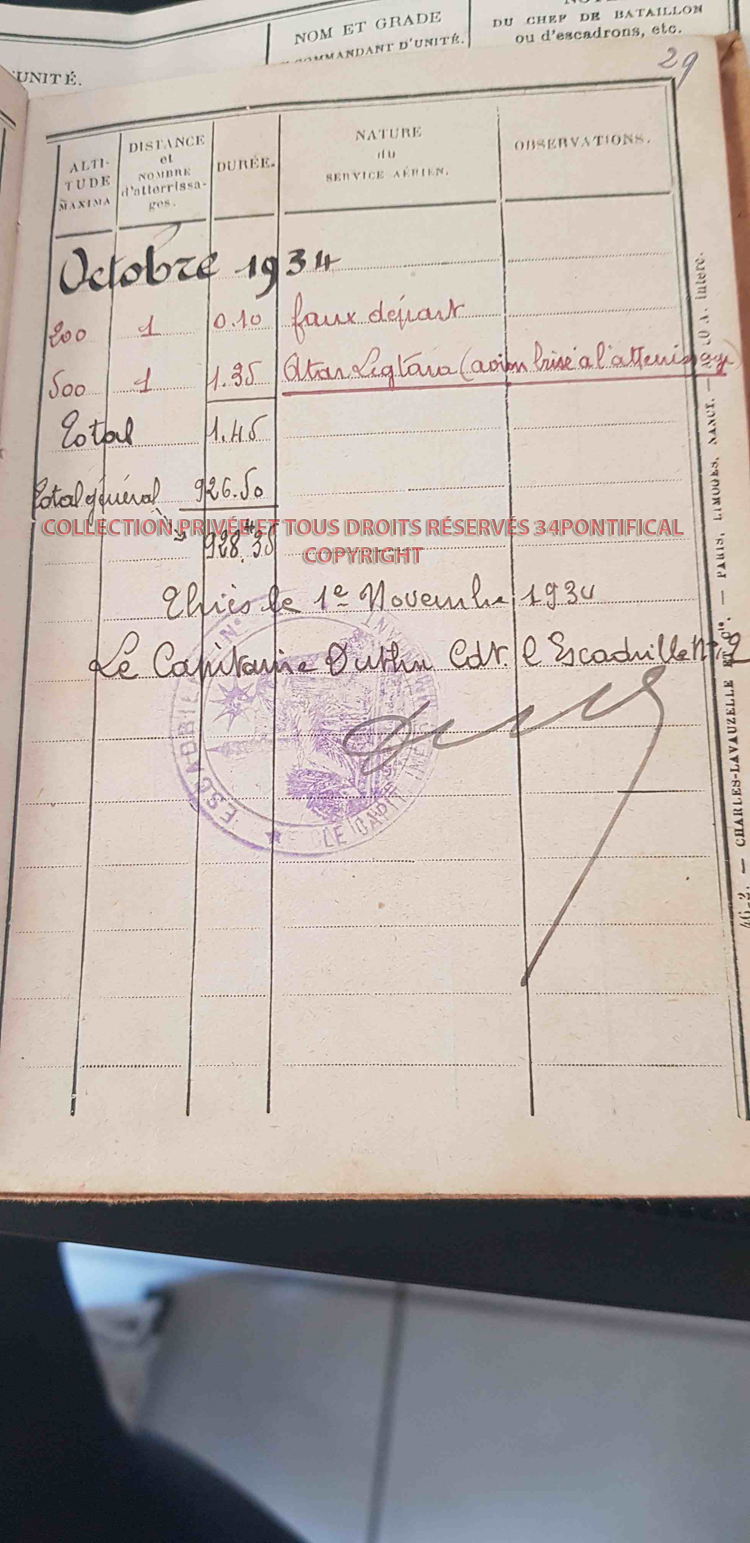 NOM ET GRADE
COMMANDANT D'UNITÉ.
DU CHEF DE BATAILLON
ou d'escadrons, etc.
UNITÉ.
29
ALTI-
TUDE
MAXIMA
DISTANCE
et
NOMBRE
d'atterrissa-
ges.
DURÉE.
NATURE
du
SERVICE AÉRIEN.
OBSERVATIONS.
Octobre 1934
200 1 0.10 faux départ
500 1 1.35 Atar (avion brisé à l'atterrissage)
Total 1.45
Total général 926.50
928.35
COLLECTION PRIVÉE ET TOUS DROITS RÉSERVÉS 34PONTIFICAL
COPYRIGHT
Thiès le 1e Novembre 1934
Le Capitaine Cdt. l'Escadrille N° 2
ESCADRILLE N°
PARIS, LIMOGES, NANCY.
CHARLES-LAVAUZELLE ET Cie.